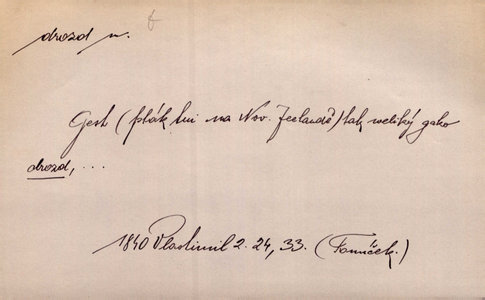 drozd m.
Gest (pták tui na Nov. Zeelandě) tak weliký gako
drozd, ...
1840 Vlastimil 2. 24, 33. (Tomíček.)